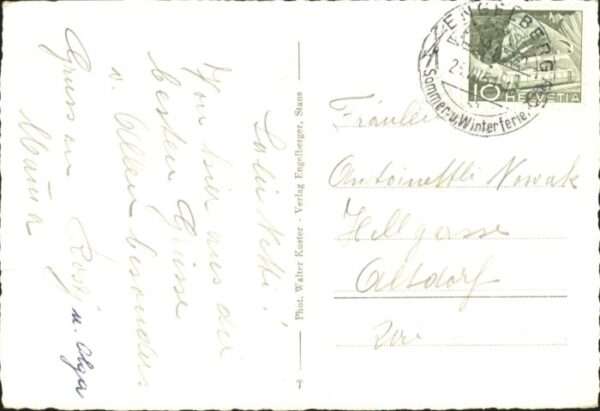 Liebi Netti!
Von hier aus die
besten Grüsse
v. Allen besonders
Gruss an Rosy
Mama
u. Olga
Phot. Walter Kuster - Verlag Engelberger, Stans
T
ENGELBERG
Sommer-u.Winterferie
10 HELVETIA
Fräulein
Antoinettli Nowak
Hellgasse
Altdorf